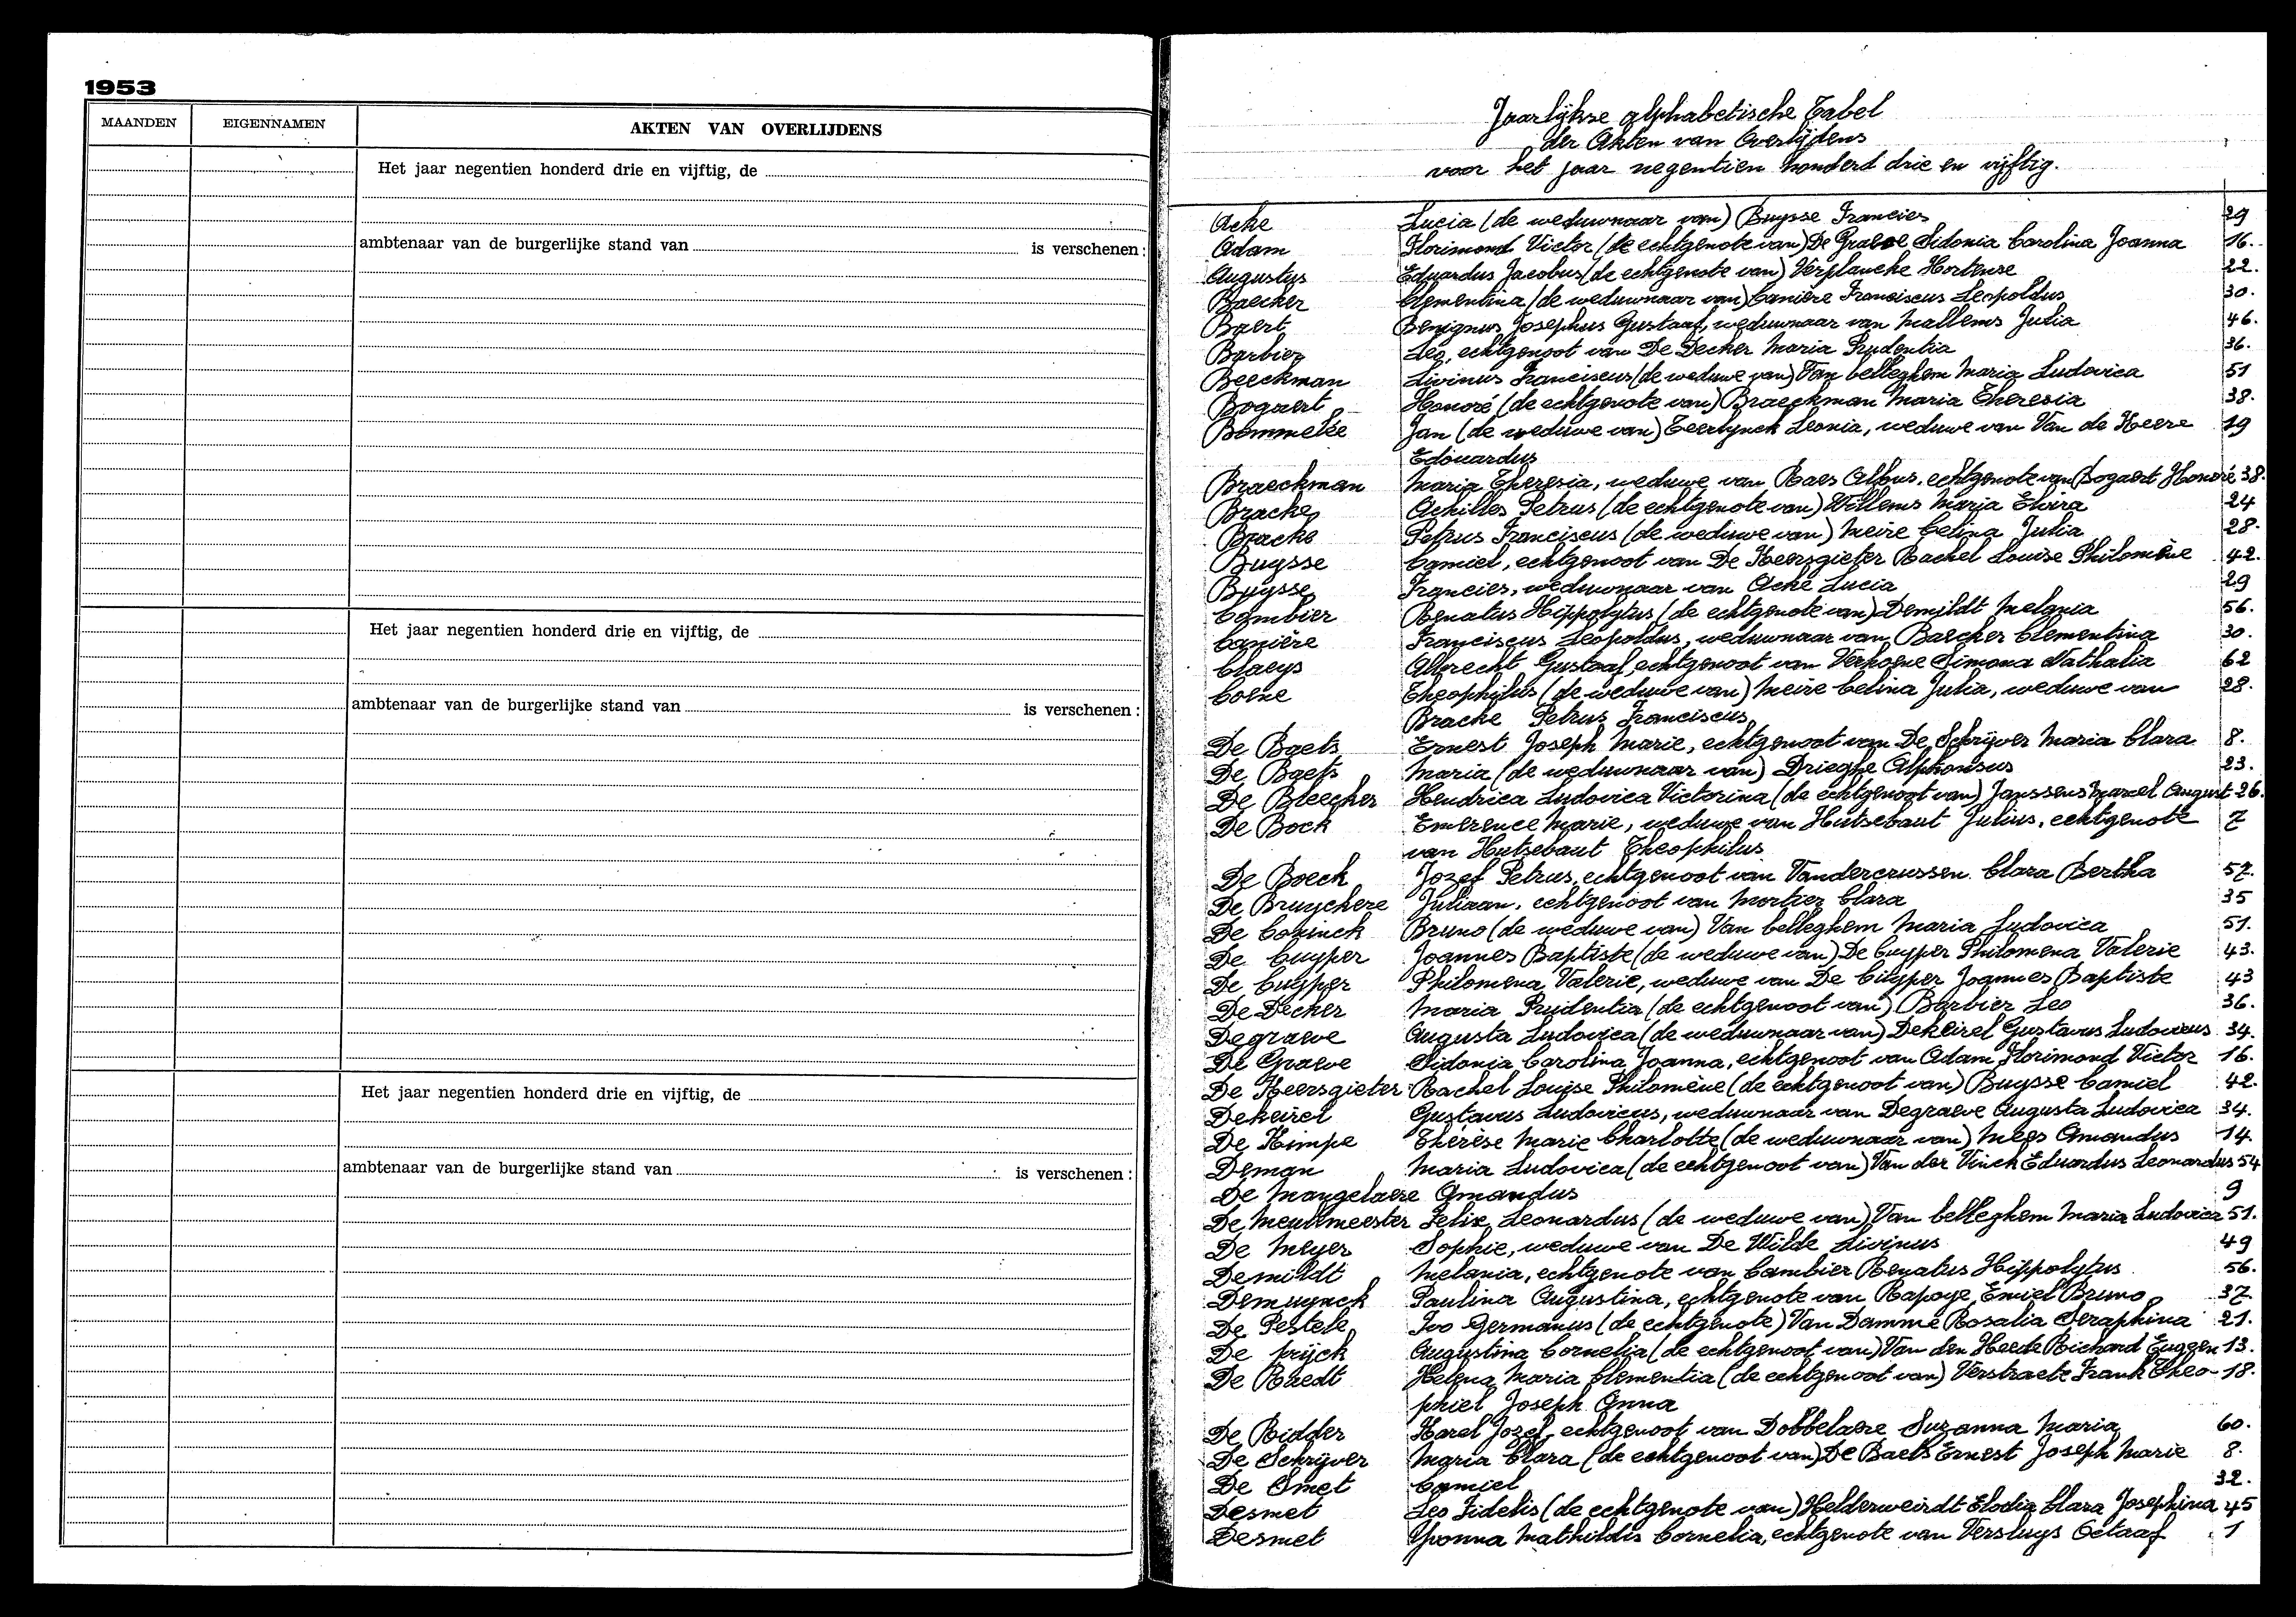 1953
MAANDEN EIGENNAMEN AKTEN VAN OVERLIJDENS
Het jaar negentien honderd drie en vijftig, de
ambtenaar van de burgerlijke stand van is verschenen:
Het jaar negentien honderd drie en vijftig, de
ambtenaar van de burgerlijke stand van is verschenen:
Het jaar negentien honderd drie en vijftig, de
ambtenaar van de burgerlijke stand van is verschenen:
Jaarlijkse alphabetische Tabel
der Akten van Overlijdens
voor het jaar negentien honderd drie en vijftig.
Acke Lucia (de weduwnaar van) Buysse Francies 29
Adam Florimond Victor (de echtgenote van) De Graeve Sidonia Carolina Joanna 16.
Augustijs Eduardus Jacobus (de echtgenote van) Verplancke Hortense 22.
Baecker Clementina (de weduwnaar van) Canière Franciscus Leopoldus 30.
Baert Benignus Josephus Gustaaf, weduwnaar van Mallems Julia 46.
Barbier Leo, echtgenoot van De Decker Maria Prudentia 36.
Beeckman Livinus Franciscus (de weduwe van) Van belleghem Maria Ludovica 51
Bogaert Honoré (de echtgenote van) Braeckman Maria Theresia 38.
Bommelée Jan (de weduwe van) Teerlynck Leonia, weduwe van Van de Keere 19
Edouardus
Braeckman Maria Theresia, weduwe van Raes Alfons, echtgenote van Bogaert Honoré 38.
Bracke Achilles Petrus (de echtgenote van) Willems Maria Elvira 24
Bracke Petrus Franciscus (de weduwe van) Meire Celina Julia 28.
Buysse Camiel, echtgenoot van De Keersgieter Rachel Louise Philomène 42.
Buysse Francies, weduwnaar van Acke Lucia 29
Cambier Renatus Hippolytus (de echtgenote van) Demildt Melania 56.
Canière Franciscus Leopoldus, weduwnaar van Baecker Clementina 30.
Claeys Albrecht Gustaaf, echtgenoot van Verhoeve Simona Nathalia 62
Coene Theophilus (de weduwe van) Meire Celina Julia, weduwe van 28.
Bracke Petrus Franciscus
De Baets Ernest Joseph Marie, echtgenoot van De Schrijver Maria Clara 8.
De Baets Maria (de weduwnaar van) Drieghe Alphonsus 23.
De Bleecker Hendrica Ludovica Victorina (de echtgenoot van) Janssens Marcel August 26.
De Bock Emerence Marie, weduwe van Hutsebaut Julius, echtgenote 7
van Hutsebaut Theophilus
De Boeck Jozef Petrus, echtgenoot van Vandercrussen Clara Bertha 57.
De Bruyckere Juliaan, echtgenoot van Mortier Clara 35
De Coninck Bruno (de weduwe van) Van belleghem Maria Ludovica 51.
De Cuyper Joannes Baptiste (de weduwe van) De Cuyper Philomena Valerie 43.
De Cuyper Philomena Valerie, weduwe van De Cuyper Joannes Baptiste 43
De Decker Maria Prudentia (de echtgenoot van) Barbier Leo 36.
Degraeve Augusta Ludovica (de weduwnaar van) Dekeirel Gustavus Ludovicus 34.
De Graeve Sidonia Carolina Joanna, echtgenoot van Adam Florimond Victor 16.
De Keersgieter Rachel Louise Philomène (de echtgenoot van) Buysse Camiel 42.
Dekeirel Gustavus Ludovicus, weduwnaar van Degraeve Augusta Ludovica 34.
De Kimpe Thérèse Marie Charlotte (de weduwnaar van) Mees Amandus 14.
Deman Maria Ludovica (de echtgenoot van) Van der Vinck Eduardus Leonardus 54
De Mangelaere Amandus 9
De Meulemeester Felix Leonardus (de weduwe van) Van belleghem Maria Ludovica 51.
De Meyer Sophie, weduwe van De Wilde Livinus 49
Demildt Melania, echtgenote van Cambier Renatus Hippolytus 56.
Demuynck Paulina Augustina, echtgenote van Rapoye Emiel Bruno 37.
De Pestele Ivo Germanus (de echtgenote) Van Damme Rosalia Seraphina 21.
De prijck Augustina Cornelia (de echtgenoot van) Van den Heede Richard Eugeen 13.
De Raedt Helena Maria Clementia (de echtgenoot van) Verstraete Frank Theo- 18.
phiel Joseph Anna
De Ridder Karel Jozef, echtgenoot van Dobbelaere Suzanna Maria 60.
De Schrijver Maria Clara (de echtgenoot van) De Baets Ernest Joseph Marie 8.
De Smet Camiel 32.
Desmet Leo Fidelis (de echtgenote van) Helderweirdt Elodia Clara Josephina 45
Desmet Yvonna Mathildis Cornelia, echtgenote van Versluys Octaaf 1